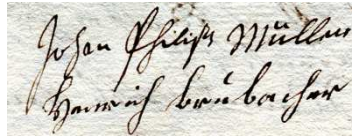 Johan Philips Müller
Henrich brubacher